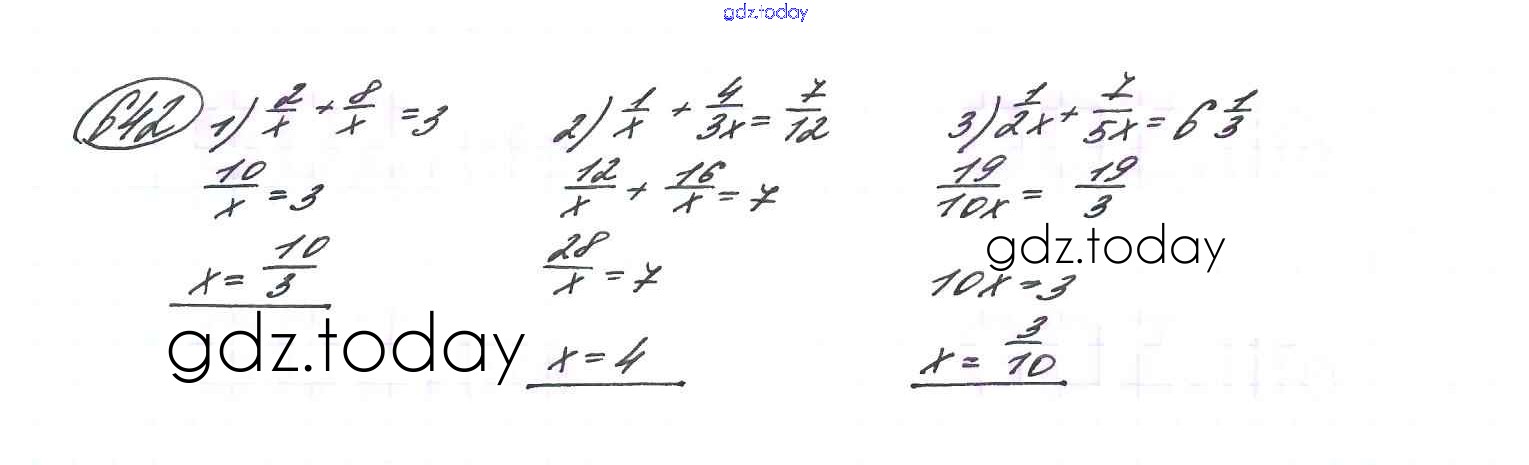 gdz.today
642 1) 2/x + 8/x = 3
10/x = 3
x = 10/3
2) 1/x + 4/3x = 7/12
12/x + 16/x = 7
28/x = 7
x = 4
3) 1/2x + 7/5x = 6 1/3
19/10x = 19/3
10x = 3
x = 3/10
gdz.today
gdz.today